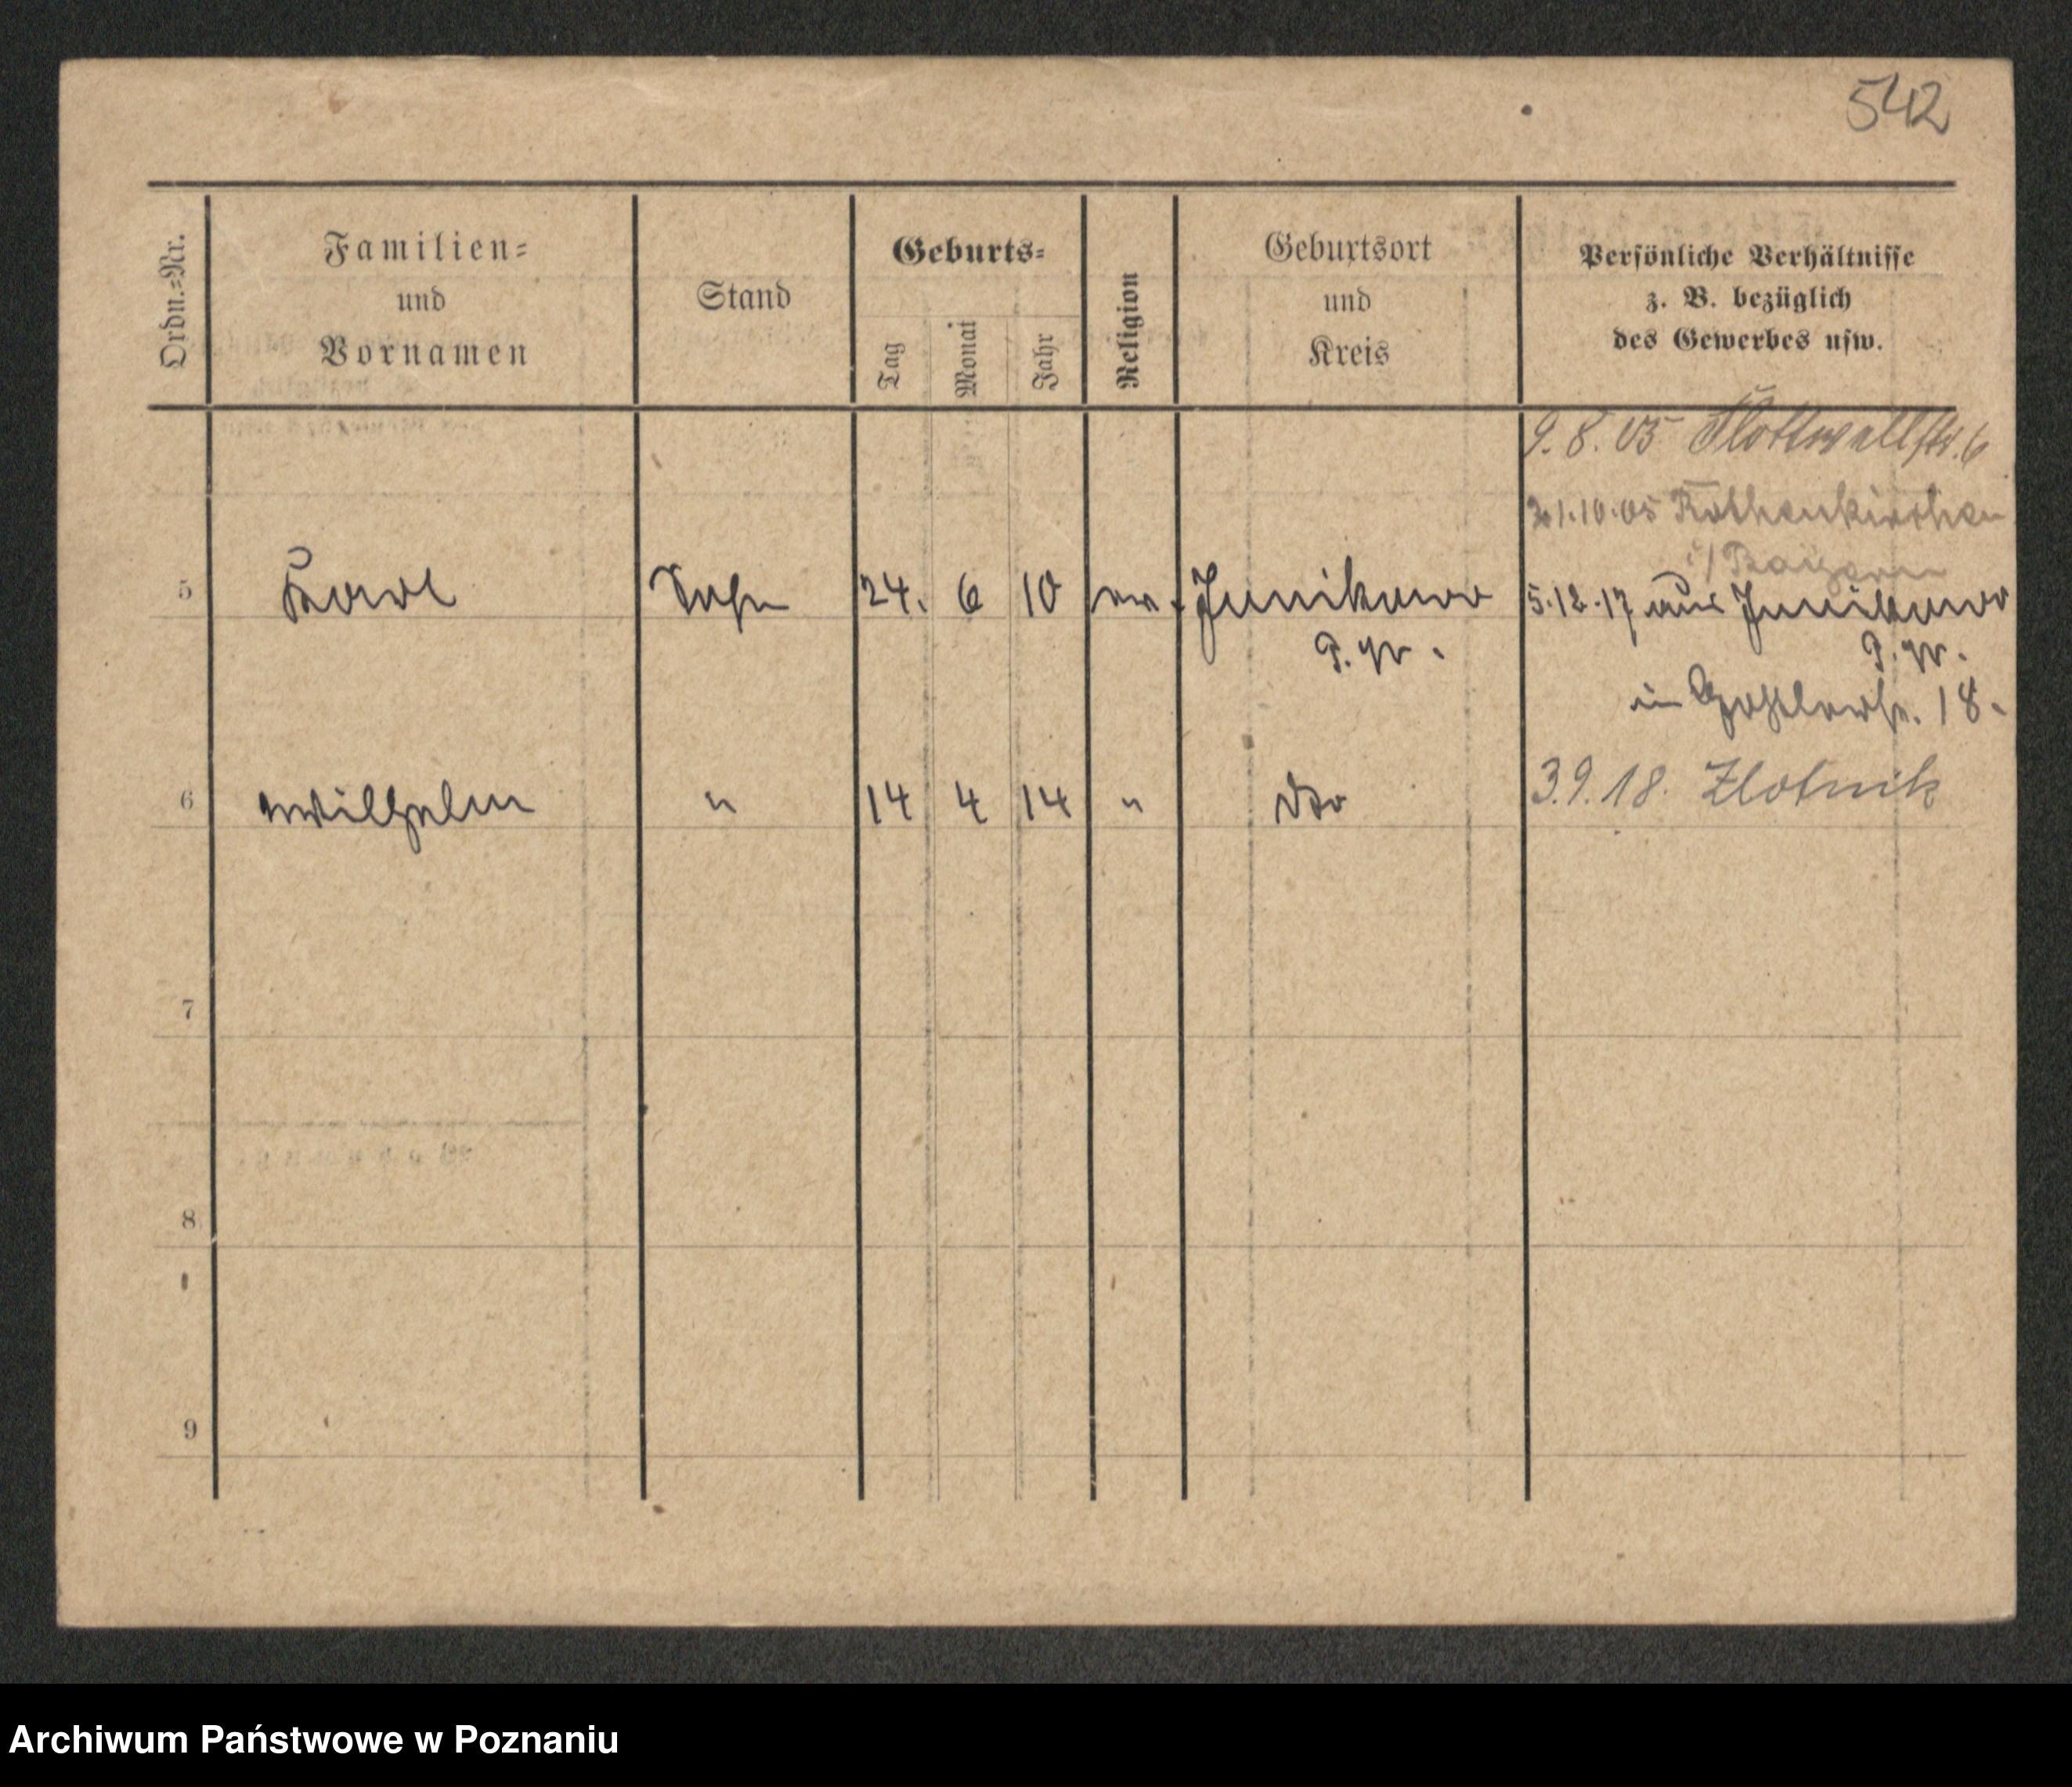 542
Ordn.-Nr.
Familien-
und
Vornamen
Stand
Geburts-
Tag
Monat
Jahr
Religion
Geburtsort
und
Kreis
Persönliche Verhältnisse
z. B. bezüglich
des Gewerbes usw.
9.8.05 Flottwellstr. 6
21.10.05 Rothenkirchen
i/Bayern
5 Karl Sohn 24. 6 10 ev. Junikowo 5.12.17 aus Junikowo
P. W. P. W.
in 18.
6 Wilhelm " 14 4 14 " dto 3.9.18. Zlotnik
7
8
9
Archiwum Państwowe w Poznaniu